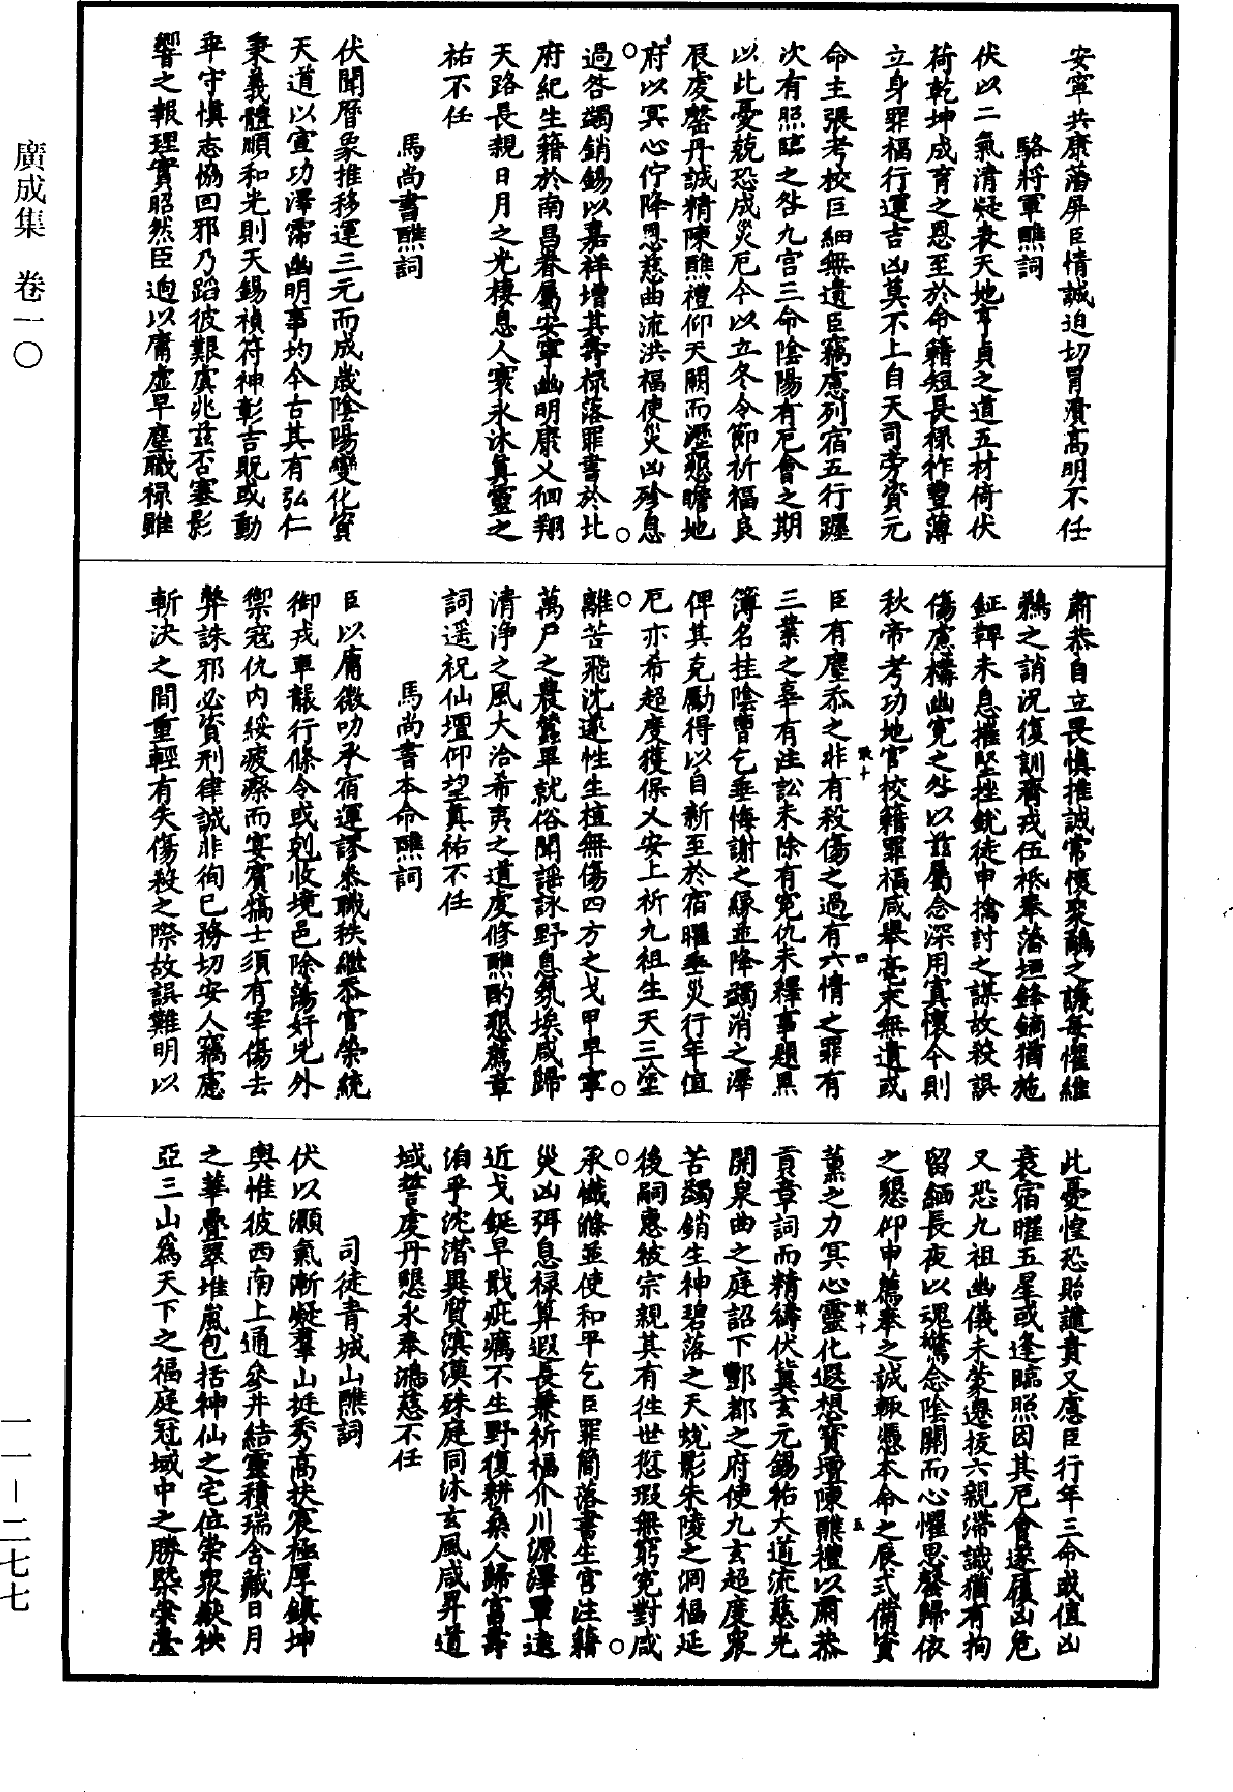 廣成集　卷一〇
安寧共康藩屏臣情誠迫切冒瀆高明不任
駱將軍醮詞
伏以二氣清凝表天地亨貞之道五材倚伏
荷乾坤成育之恩至於命籍短長祿祚豐薄
立身罪福行運吉凶莫不上自天司旁資元
命主張考校巨細無遺臣竊慮列宿五行躔
次有照臨之咎九宮三命陰陽有厄會之期
以此憂兢恐成災厄今以立冬令節祈福良
辰虔罄丹誠精陳醮禮仰天闕而瀝懇瞻地
府以冥心佇降恩慈曲流洪福使災凶殄息
過咎蠲銷錫以嘉祥增其壽祿落罪書於北
府紀生籍於南昌眷屬安寧幽明康乂徊翔
天路長親日月之光棲息人寰永沐真靈之
祐不任
馬尚書醮詞
伏聞曆象推移運三元而成歲陰陽變化資
天道以宣功澤霈幽明事均今古其有弘仁
秉義體順和光則天錫禎符神彰吉貺或動
乖守慎志愶回邪乃蹈彼艱虞兆茲否塞影
響之報理實昭然臣迥以庸虛早塵職祿雖
肅恭自立畏慎推誠常懷聚鷸之譏每懼維
鵜之誚況復訓齊戎伍祗奉藩垣鋒鏑猶施
鉦鞞未息摧堅挫銳徒申擒討之謀故殺誤
傷慮構幽冤之咎以茲屬念深用寘懷今則
秋帝考功地官校籍罪福咸舉毫末無遺或
臣有塵忝之非有殺傷之過有六情之罪有
三業之辜有注訟未除有冤仇未釋事題黑
簿名挂陰曹乞垂悔謝之緣並降蠲消之澤
俾其克勵得以自新至於宿曜垂災行年值
厄亦希超度獲保乂安上祈九祖生天三塗
離苦飛沈遂性生植無傷四方之戈甲早寧
萬戶之農蠶畢就俗聞謠詠野息氛埃咸歸
清淨之風大洽希夷之道虔修醮酌懇薦章
詞遥祝仙壇仰望真祐不任
馬尚書本命醮詞
臣以庸微叨承宿運謬參職秩繼忝官榮統
御戎車龔行條令或剋收境邑除蕩奸兇外
禦寇仇內綏疲瘵而宴賓犒士須有宰傷去
弊誅邪必資刑律誠非徇已務切安人竊慮
斬決之間重輕有失傷殺之際故誤難明以
此憂惶恐貽譴責又慮臣行年三命或值凶
衰宿曜五星或逢臨照因其厄會遂履凶危
又恐九祖幽儀未蒙遷拔六親滯識猶有拘
留緬長夜以魂驚念陰關而心懼思罄歸依
之懇仰申薦奉之誠輒憑本命之辰式備賓
薰之力冥心靈化遐想寶壇陳醮禮以肅恭
貢章詞而精禱伏冀玄元錫祐大道流慈光
開泉曲之庭詔下酆都之府使九玄超度衆
苦蠲銷生神碧落之天蛻影朱陵之洞福延
後嗣惠被宗親其有徃世愆瑕無窮冤對咸
承懺滌並使和平乞臣罪簡落書生官注籍
災凶弭息祿算遐長兼祈福介川源澤覃遠
近戈鋋早戢疵癘不生野復耕桑人歸富壽
洎乎沈潛異質漠殊庭同沐玄風咸昇道
域誓虔丹懇永奉鴻慈不任
司徒青城山醮詞
伏以灝氣漸凝羣山挺秀高扶宸極厚鎮坤
輿惟彼西南上通參井結靈積瑞含藏日月
之華疊翠堆嵐包括神仙之宅位崇衆嶽袟
亞三山爲天下之福庭冠域中之勝槩棠臺
一一—二七七